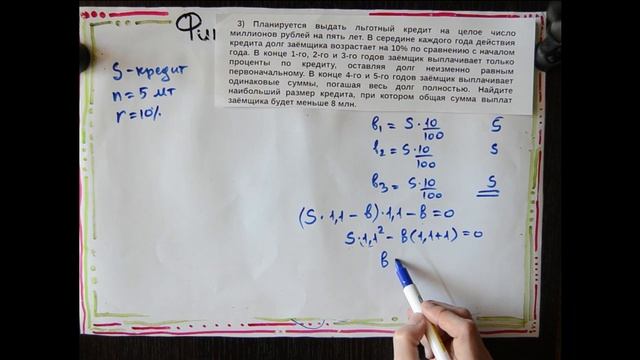 Фин
3) Планируется выдать льготный кредит на целое число
миллионов рублей на пять лет. В середине каждого года действия
кредита долг заёмщика возрастает на 10% по сравнению с началом
года. В конце 1-го, 2-го и 3-го годов заёмщик выплачивает только
проценты по кредиту, оставляя долг неизменно равным
первоначальному. В конце 4-го и 5-го годов заёмщик выплачивает
одинаковые суммы, погашая весь долг полностью. Найдите
наибольший размер кредита, при котором общая сумма выплат
заёмщика будет меньше 8 млн.
S - кредит
n = 5 лет
r = 10%
в₁ = S · 10/100 S
в₂ = S · 10/100 S
в₃ = S · 10/100 S
(S · 1,1 - в) · 1,1 - в = 0
S · 1,1² - в(1,1+1) = 0
в